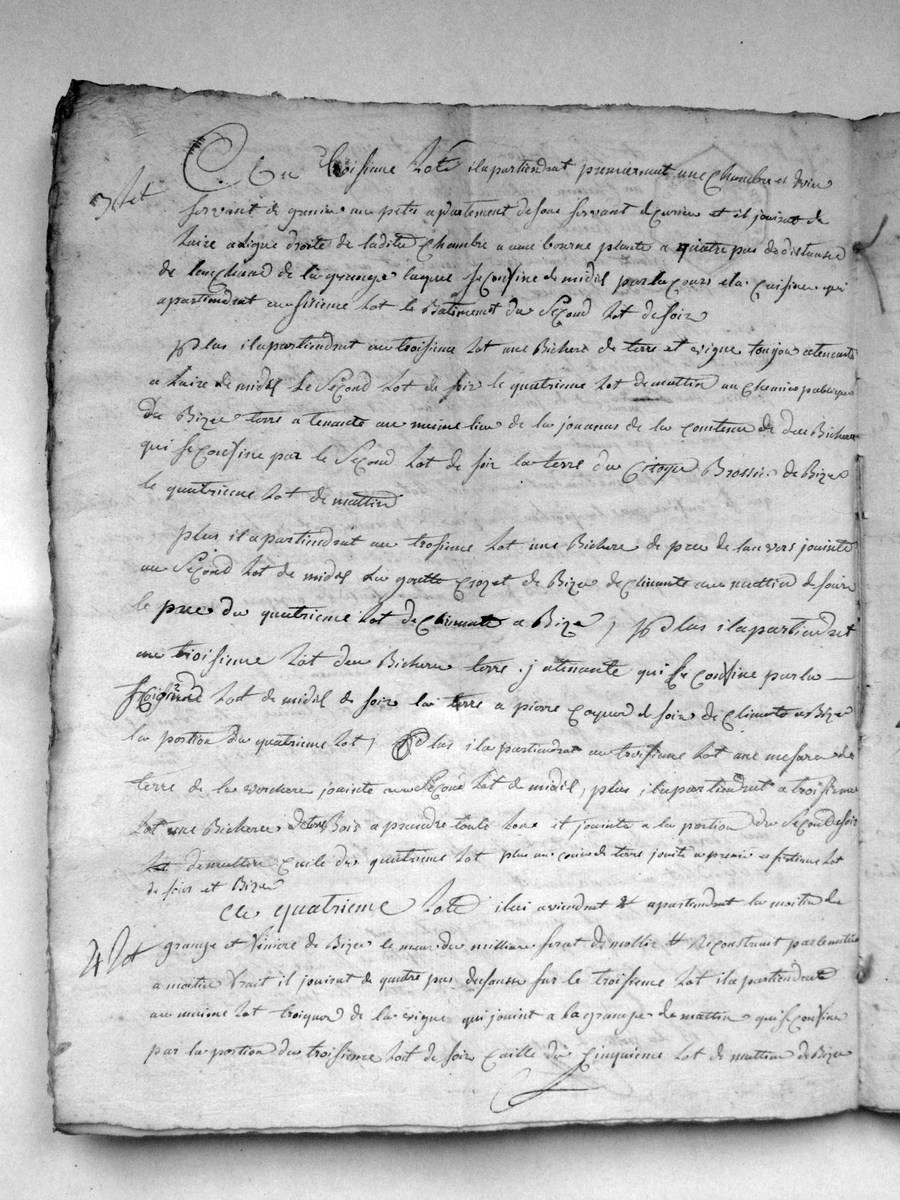 3 Lot
Au troisieme Lot il apartiendrat premierement une Chambre et
servant de grenie un petit apartement desous servant decurie et il jouirat de
Laire a ligne droite de ladite Chambre a une bourne plante a quatre pas de distance
de la grange laque se confine de midil par la cours et la Cuisine qui
apartiendrat au sisieme Lot le Batiment du Second Lot de soir
plus il apartiendrat au troisieme Lot une Bichere de terre et vigne toujour atenante
a Laire de midil le Second Lot de soir le quatrieme Lot de mattin un Chemin publique
de Bize terre atenante au meme lieu de la de la contenu de deu Bichere
qui se confine par le Second Lot de soir la terre du Citoye Brossi de Bize
le quatrieme Lot de mattin
plus il apartiendrat au trosieme Lot une Bichere de pre de lanvers jointe
au Second Lot de midil La goutte de Bize de Climante au mattin de soire
le pre du quatrieme Lot de Climante a Bize, plus il apartiendrat
au troisieme Lot deu Bichere terre j atenante qui se confine par la
Lot de midil de soir la terre a pierre de soir de Climante a Bize
la portion du quatrieme Lot, plus il apartiendrat au troisieme Lot une mesure de
terre de la verchere jointe au Second Lot de midil, plus il apartiendrat a troisieme
Lot une Bicheree de Bois a prendre toute Lone et jointe a la portion du Second de soir
de mattin caile du quatrieme Lot plus un coin de terre
de soir et Bize
4 Lot
Le quatrieme Lot il lui aviendrat & apartiendrat la moitie de
grange et finiere de Bize le meur du millieu serat demollie et Reconstruit par
a moitie frait il jouirat de quatre pas desousse sur le troisieme Lot il apartiendrat
au meme Lot de la vigne qui joint a la grange de mattin qui se confine
par la portion du troisieme Lot de soir caille du Cinquieme Lot de mattin de Bize